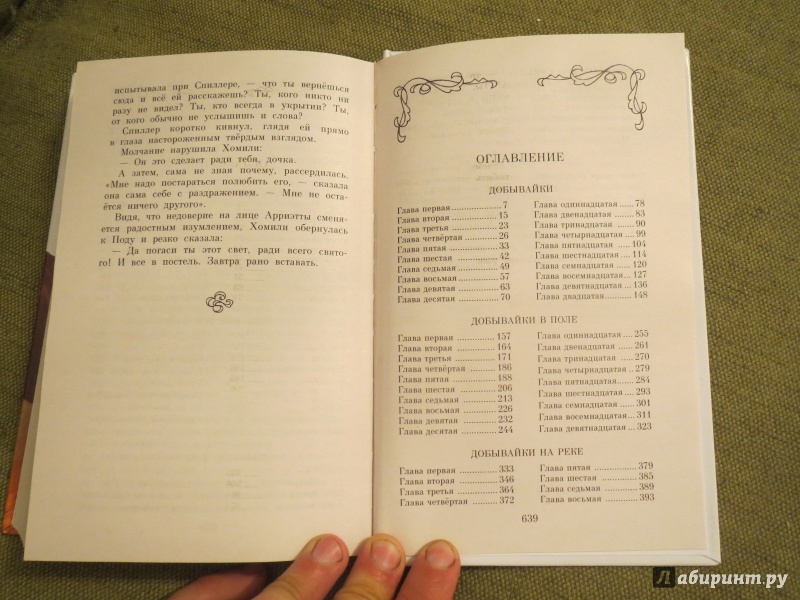 испытывала при Спиллере, — что ты вернёшься
сюда и всё ей расскажешь? Ты, кого никто ни
разу не видел? Ты, кто всегда в укрытии? Ты,
от кого обычно не услышишь и слова?
Спиллер коротко кивнул, глядя ей прямо
в глаза настороженным твёрдым взглядом.
Молчание нарушила Хомили:
— Он это сделает ради тебя, дочка.
А затем, сама не зная почему, рассердилась.
«Мне надо постараться полюбить его, — сказала
она сама себе с раздражением. — Мне не оста-
ётся ничего другого».
Видя, что недоверие на лице Арриэтты сменя-
ется радостным изумлением, Хомили обернулась
к Поду и резко сказала:
— Да погаси ты этот свет, ради всего свято-
го! И все в постель. Завтра рано вставать.
ОГЛАВЛЕНИЕ
ДОБЫВАЙКИ
Глава первая 7
Глава вторая 15
Глава третья 23
Глава четвёртая 26
Глава пятая 33
Глава шестая 42
Глава седьмая 49
Глава восьмая 57
Глава девятая 63
Глава десятая 70
Глава одиннадцатая 78
Глава двенадцатая 83
Глава тринадцатая 90
Глава четырнадцатая 99
Глава пятнадцатая 104
Глава шестнадцатая 114
Глава семнадцатая 120
Глава восемнадцатая 127
Глава девятнадцатая 136
Глава двадцатая 148
ДОБЫВАЙКИ В ПОЛЕ
Глава первая 157
Глава вторая 164
Глава третья 171
Глава четвёртая 186
Глава пятая 188
Глава шестая 206
Глава седьмая 213
Глава восьмая 226
Глава девятая 232
Глава десятая 244
Глава одиннадцатая 255
Глава двенадцатая 261
Глава тринадцатая 270
Глава четырнадцатая 279
Глава пятнадцатая 284
Глава шестнадцатая 293
Глава семнадцатая 301
Глава восемнадцатая 311
Глава девятнадцатая 323
ДОБЫВАЙКИ НА РЕКЕ
Глава первая 333
Глава вторая 346
Глава третья 364
Глава четвёртая 372
Глава пятая 379
Глава шестая 385
Глава седьмая 389
Глава восьмая 393
639
Лабиринт.ру